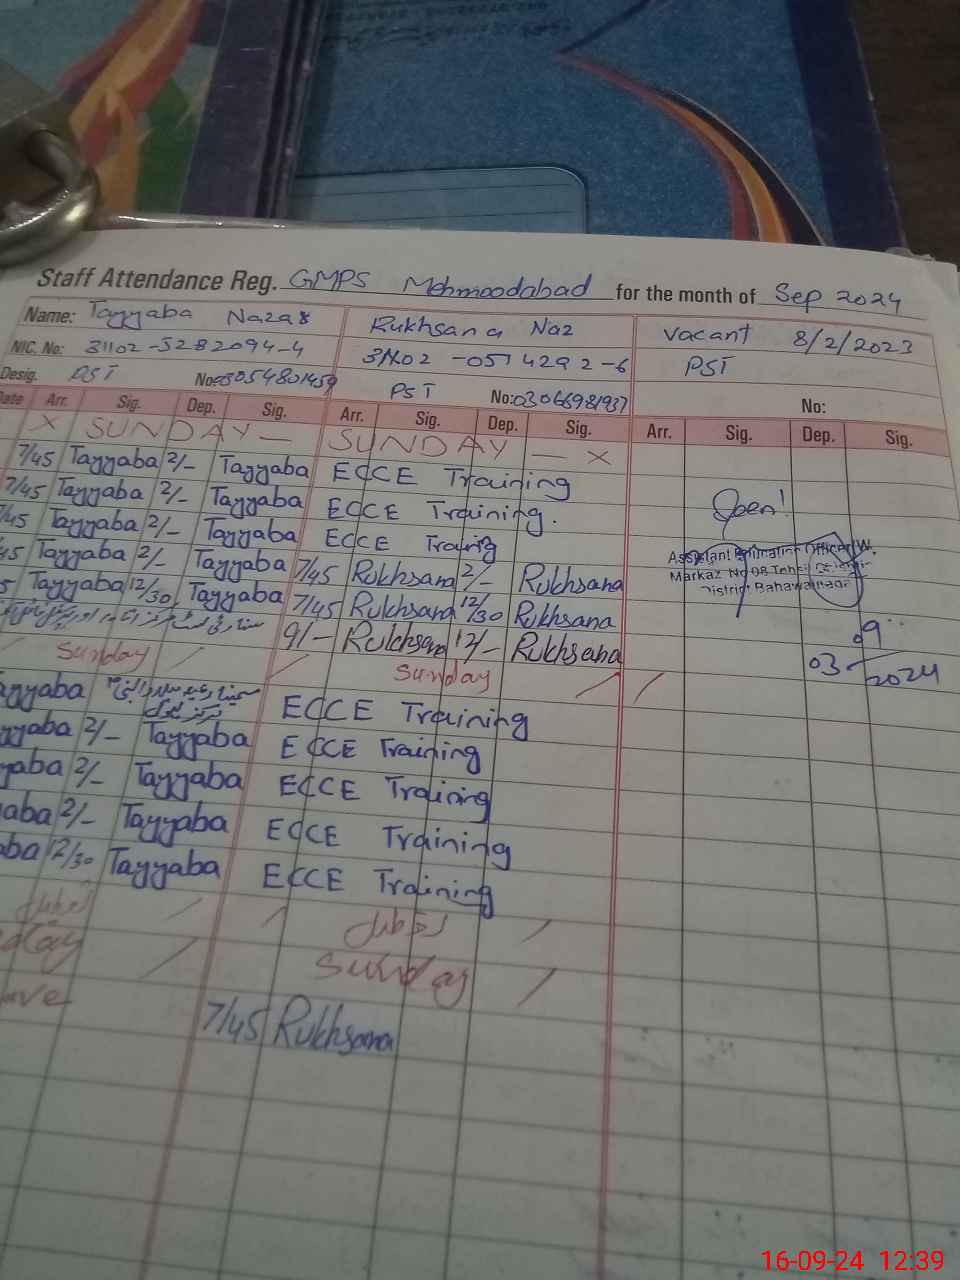 Staff Attendance Reg. GMPS Mehmoodabad for the month of Sep 2024
Name: Tayyaba Nazar Rukhsana Naz Vacant 8/2/2023
NIC. No: 31102-5282094-4 31102-0514292-6 PST
Desig. PST No: 03054801459 PST No: 03066981937 No:
Date Arr. Sig. Dep. Sig. Arr. Sig. Dep. Sig. Arr. Sig. Dep. Sig.
X SUNDAY — SUNDAY — X
7/45 Tayyaba 2/- Tayyaba ECCE Training
7/45 Tayyaba 2/- Tayyaba ECCE Training.
7/45 Tayyaba 2/- Tayyaba ECCE Training
45 Tayyaba 2/- Tayyaba 7/45 Rukhsana 2/- Rukhsana
5 Tayyaba 12/30 Tayyaba 7/45 Rukhsana 12/30 Rukhsana
9/- Rukhsana 12/- Rukhsana
Assistant Education Officer W.
Markaz No 08 Tehsil
District Bahawalnagar
09
03 2024
Sunday Sunday
Tayyaba ECCE Training
yyaba 2/- Tayyaba ECCE Training
yaba 2/- Tayyaba ECCE Training
aba 2/- Tayyaba ECCE Training
aba 12/30 Tayyaba ECCE Training
day Sunday
ave 7/45 Rukhsana
16-09-24 12:39